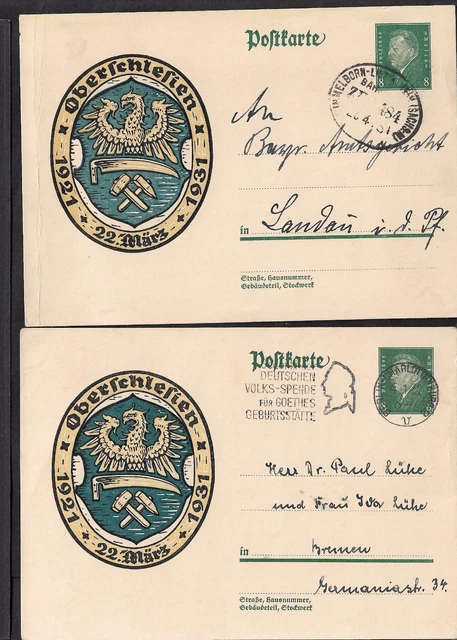 Postkarte
Oberschlesien
1921
1931
22. März
8 8
An
Bayr. Amtsgericht
in Landau i. d. Pf.
Straße, Hausnummer,
Gebäudeteil, Stockwerk
Postkarte
Oberschlesien
1921
1931
22. März
DEUTSCHEN
VOLKS-SPENDE
FÜR GOETHES
GEBURTSSTÄTTE
Herr Dr. Paul Lühe
und Frau Iva Lühe
in Bremen
Germaniastr. 34.
Straße, Hausnummer,
Gebäudeteil, Stockwerk